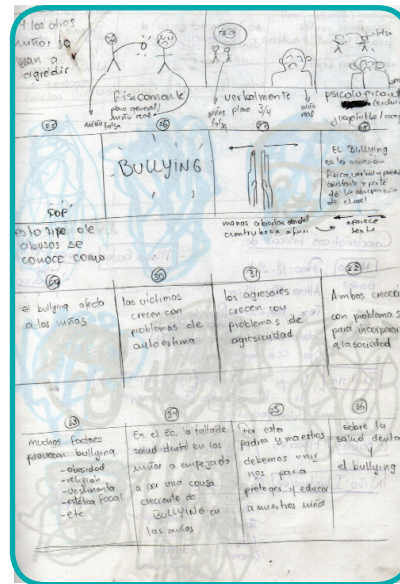 los otros
niños
van a
agredir
físicamente
plano general/
niño real
niño
falso
verbalmente
niños plano 3/4
falso
niño
real
BULLYING
EL BUllying
es la agresión
física, verbal y
constante y parte
de
de clase!
manos abiertas desde el
centro hacia afuera
aparece
texto
POP
este tipo de
abusos se
conoce como
30
31
32
el bullying afecta
a los niños
las víctimas
crecen con
problemas de
autoestima
los agresores
crecen con
problemas de
agresividad
Ambos crecen
con problemas
para incorporar
a la sociedad
33
34
35
36
muchos factores
provocan bullying
-obesidad
-religión
-vestimenta
-estética facial
-etc
En el Ec. la falta de
salud dental en los
niños a empezado
a ser una causa
creciente de
BULLYING en
las aulas
Por esto
padres y maestros
debemos unir
nos para
proteger y educar
a nuestros niños
sobre la
salud dental
y
el bullying